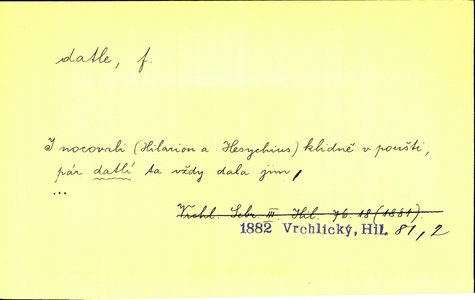 datle, f.
I nocovali (Hilarion a Hesychius) klidně v poušti,
pár datlí ta vždy dala jim,
...
Vrchl. Sebr. III. Hil. 76. 18 (1881).
1882 Vrchlický, Hil. 81, 2